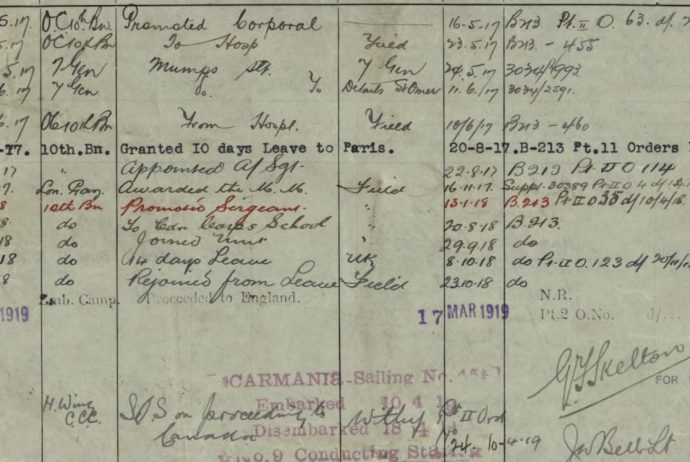 5.17. OC 10th Bn. Promoted Corporal 16.5.17 B213 Pt. II O. 63. d/.
5.17 OC 10th Bn To Hosp Field 23.5.17 B213 - 455
5.17 7 Gen Mumps 7 Gen 24.5.17 3034/
6.17 7 Gen do. To Details St Omer 11.6/17 3034/2591.
6.17 OC 10th Bn From Hospl. Field 10/6/17 B213 - 460
-17. 10th.Bn. Granted 10 days Leave to Paris. 20-8-17. B-213 Pt.11 Orders
17 " Appointed A/Sgt. " 22-8-17 B213 Pt II O 114
7. Lon. Gaz. Awarded the M.M. Field 16.11.17. Suppl. 30389 Pt II O 4 d/
8 10th Bn Promoted Sergeant. " 13-1-18 B.213 Pt II O 35 d/10/4/18
8 do To Cdn Corps School " 20.8.18 B213.
18 do Joined Unit " 29.9.18 do
18 do 14 days Leave UK 8.10.18 do Pt II O. 123 d/ 20/11/
8 do Rejoined from Leave Field 23.10.18 do
Emb. Camp. Proceeded to England. N.R.
1919 17 MAR 1919 Pt.2 O.No. d/...
G Skelton
FOR
CARMANIA Sailing No.
Embarked 10.4.19
H. Wing C.C.C. S O S on proceeding to Canada Witley Pt II Ord
Disembarked 18.4.
No. 24. 10-4-19
No.9 Conducting Staff
Bell Lt